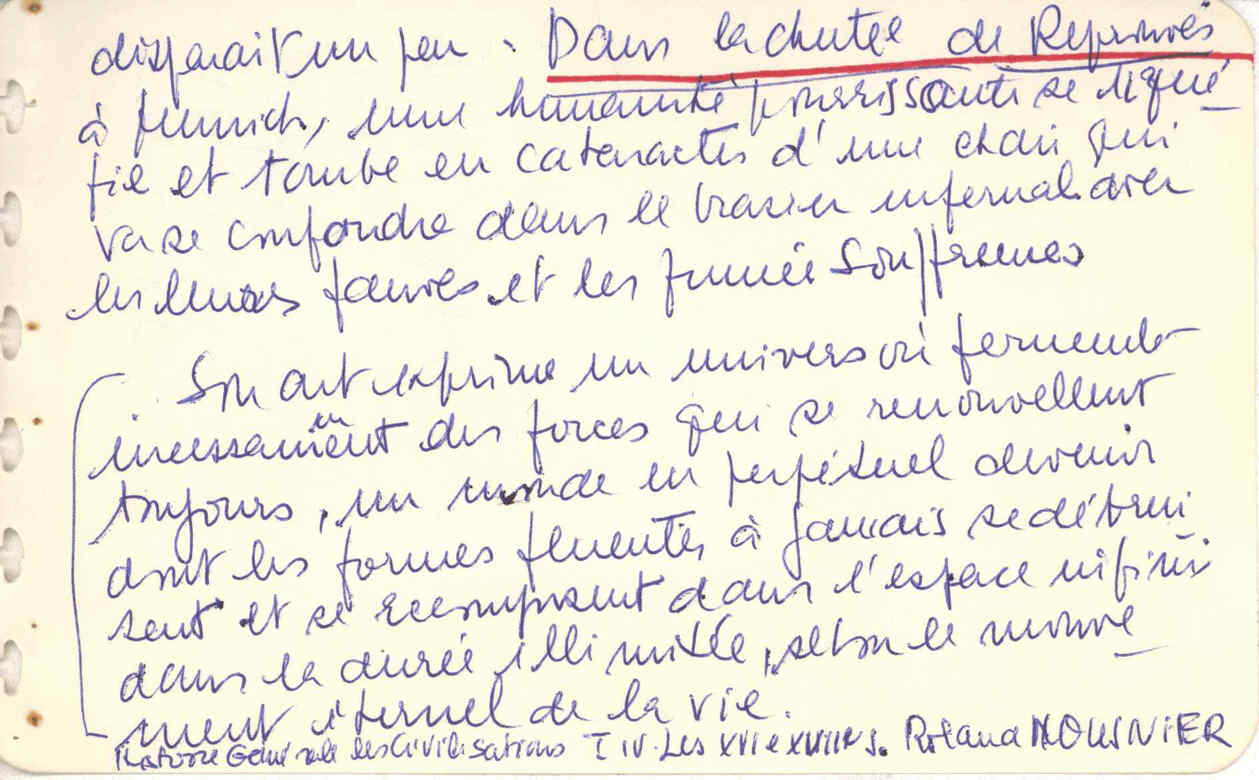 disparait un peu. Dans la chute de Reprouvés
à Munich, une humanité pourrissante se liqué-
fie et tombe en cataractes d'une chair qui
va se confondre dans le brasier infernal avec
les lueurs fauves et les fumées souffreuses
Son art exprime un univers où fermente
incessamment des forces qui se renouvellent
toujours, un monde en perpétuel devenir
dont les formes fluentes à jamais se détrui
sent et se recomposent dans l'espace infini
dans la durée illimitée, selon le mouve-
ment éternel de la vie.
Histoire Générale des Civilisations T IV. Les XVI e XVIII e s. Roland MOUSNIER